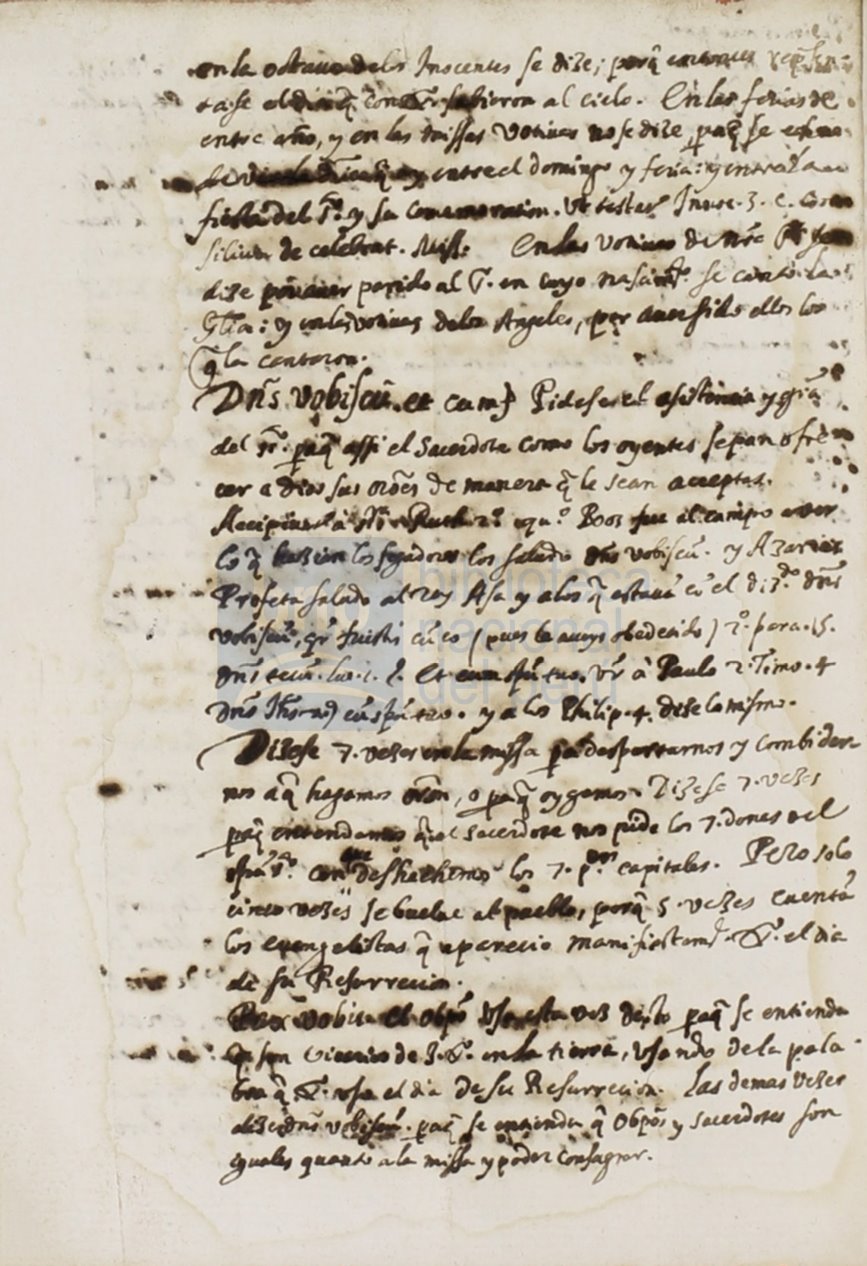 en la octaua de los Inocentes se dize; porq̃ entonces
tase el con subieron al cielo. En las ferias de
entre año, y en las missas Votiuas no se dize paq̃ se
entre el domingo y feria: y entre la
fiesta del S.r y su comemoracion. Vt testat Innoc. 3. c. con
silium de celebrat. Miss. En las votiuas de nr̃a
dize por auer parido al S.r en cuyo nascim.to se canto la
Gl̃ia: y en las votiuas de los Angeles, por auer sido ellos los
q̃ la cantaron.
Dñs vobiscũ. et cum Pidese el asistencia y gr̃a
del sr̃. paq̃ assi el Sacerdote como los oyentes sepan ofre
cer a Dios sus orões de manera q̃ le sean aceptas.
Ruth 2.º Booz fue al campo a ver
lo q̃ hazian los segadores los saludo dñs vobiscũ. y Azarias
Profeta saludo al rey Asa y a los q̃ estauã cõ el diz.do dñs
vobiscũ, qr̃ fuistis cũ eo (pues le aueys obedecido) 2.º para. 15.
dñs tecũ. luc. 1. Et cum spũ tuo. S. Paulo 2. Timo. 4
dñs cũ spũ tuo. y a los Philip. 4. dize lo mismo.
Dizese 7. vezes en la missa pa despertarnos y combidar
nos a q̃ hagamos orõn, o paq̃ oygamos. Dizese 7. vezes
paq̃ entendamos q̃ el sacerdote nos pide los 7. dones del
spũ S.to con que deshathemos los 7. p.os capitales. Pero solo
cinco vezes se buelue al pueblo, porq̃ 5. vezes cuentã
los euangelistas q̃ aparecio manifiestam.te X.o el dia
de su Resurrecion.
Pax vobis el obpõ vsa esta vez desto paq̃ se entienda
q̃ son Vicarios de J. X. en la tierra, vsando de la pala
bra q̃ X. vsa el dia de su Resurrecion. Las demas vezes
dize dñs vobiscũ. paq̃ se entienda q̃ Obpõs y sacerdotes son
yguales quanto a la missa y poder consagrar.
biblioteca
nacional
del perú